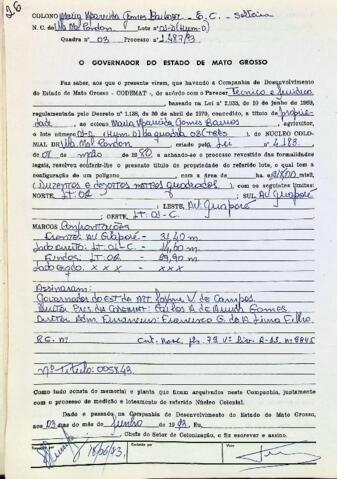 26
COLONO Maria Aparecida Gomes Barbosa - E.C. - Solteira
N. C. de Vila Mal Rondon Lote nº 01-D (Hum-D)
Quadra nº 03 Processo nº 2.487/83
O GOVERNADOR DO ESTADO DE MATO GROSSO
Faz saber, aos que o presente virem, que havendo a Companhia de Desenvolvimento
do Estado de Mato Grosso - CODEMAT -, de acordo com o Parecer Técnico e Jurídico
, baseado na Lei nº 2.933, de 10 de junho de 1969,
regulamentada pelo Decreto nº 1.138, de 30 de abril de 1970, concedido, a título de proprie
dade, ao colono Maria Aparecida Gomes Barbosa, agricultor,
o lote número 01-D (Hum-D) da quadra 03 (três), do NÚCLEO COLONIAL
DE Vila Mal Rondon criado pela Lei nº 4.183
de 07 de maio de 1980 e achando-se o processo revestido das formalidades
legais, resolveu conferir-lhe o presente título de propriedade do referido lote, o qual tem a
configuração de um polígono, com a área de
(Duzentos e dezoito metros quadrados), com os seguintes limites:
NORTE, LT. 02 SUL, AV Guaporé
LESTE, AV. Guaporé
OESTE, LT. 01-C.
MARCOS Confrontações
Frente: AV Guaporé - 31,40 m.
Lado Direito: LT. 01-C - 14,60 m.
Fundos: LT. 02 - 29,90 m.
Lado Esqdo: x x x - x x x
Assinaram:
Governador do Est. de MT. Jayme V. de Campos.
Diretor Pres. da CODEMAT: Carlos A. de Arruda Gomes
Diretor Adm. Financeiro: Francisco G. de A. Lima Filho
Nº Título: 005843.
Como tudo consta do memorial e planta que ficam arquivados nesta Companhia, juntamente
com o processo de medição e loteamento do referido Núcleo Colonial.
Dado e passado na Companhia de Desenvolvimento do Estado de Mato Grosso,
aos 03 dias do mês de Junho de 1983. Eu,
, Chefe do Setor de Colonização, o fiz escrever e assino.
Recebido
Visto